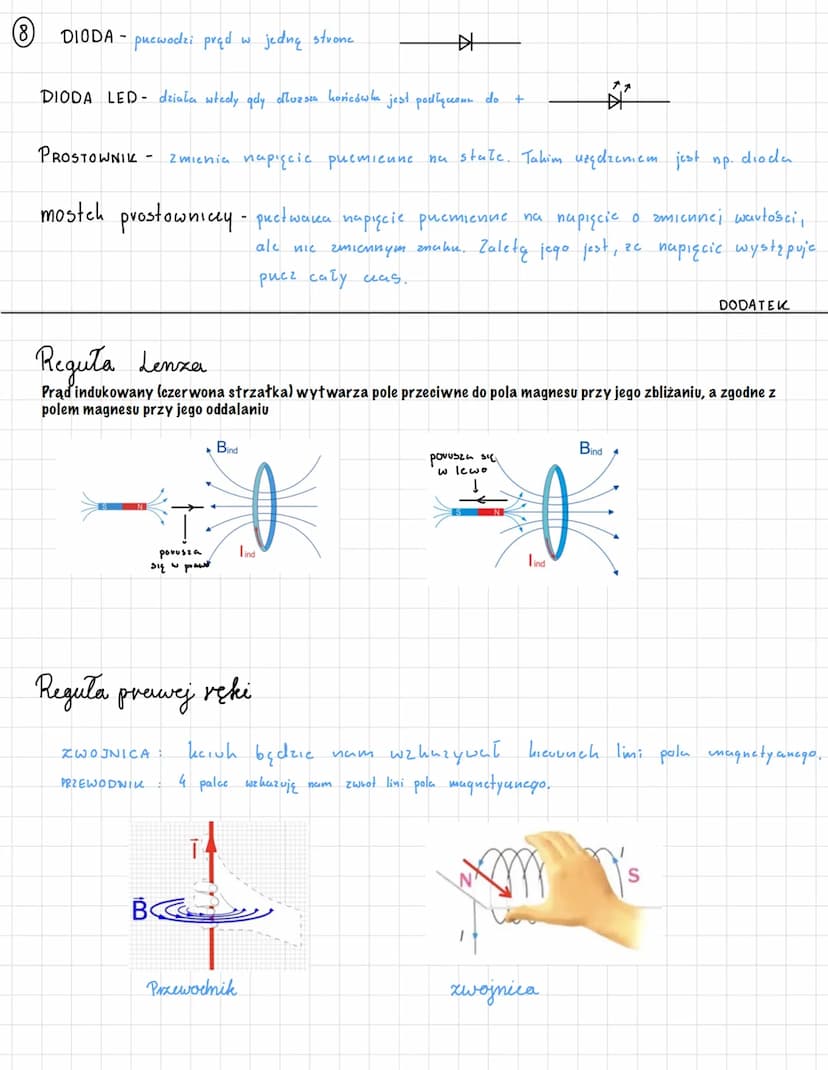 8
DIODA - przewodzi prąd w jedną stronę
DIODA LED - działa wtedy gdy dłuższa końcówka jest podłączona do +
PROSTOWNIK - zmienia napięcie przemienne na stałe. Takim urządzeniem jest np. dioda
mostek prostowniczy - przetwarza napięcie przemienne na napięcie o zmiennej wartości,
ale nie zmiennym znaku. Zaletą jego jest, że napięcie występuje
przez cały czas.
DODATEK
Reguła Lenza
Prąd indukowany (czerwona strzałka) wytwarza pole przeciwne do pola magnesu przy jego zbliżaniu, a zgodne z
polem magnesu przy jego oddalaniu
Bind
S N
porusza
się w prawo
Iind
porusza się
w lewo
Bind
S N
Iind
Reguła prawej ręki
ZWOJNICA: kciuk będzie nam wskazywał kierunek lini pola magnetycznego.
PRZEWODNIK : 4 palce wskazują nam zwrot lini pola magnetycznego.
I
B
Przewodnik
N
I
S
I
zwojnica